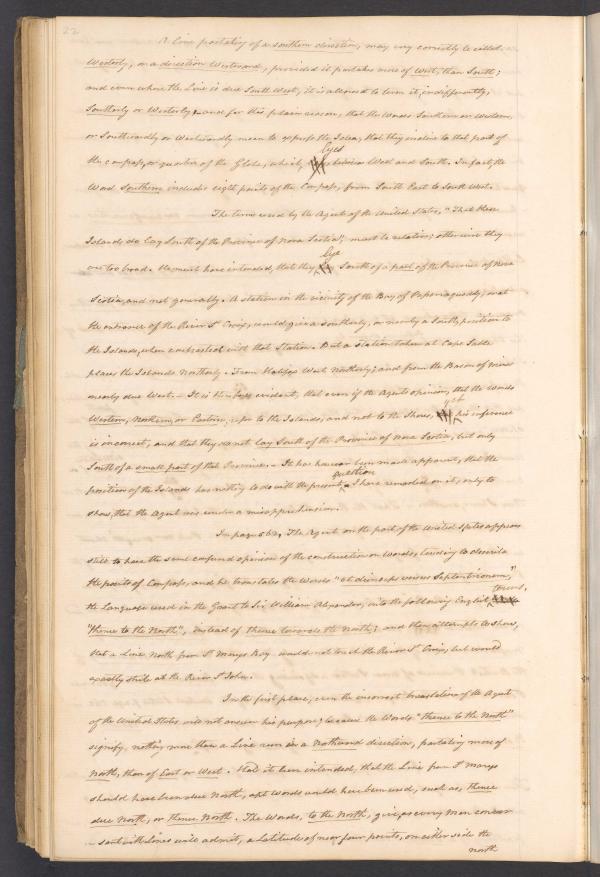 22
A Line partaking of a southern direction, may very correctly be called
Westerly, or a direction Westward, provided it partakes more of West, than South;
and even where the Line is due South West, it is allowed to term it, indifferently,
Southerly or Westerly, and for this plain reason, that the Words Southern or Western,
or Southwardly or Westwardly mean to express the Idea, that they incline to that part of
Lyes
the compass, or quarter of the Globe, which, between West and South. In fact, the
Word Southern includes eight points of the Compass, from South East to South West.
The terms used by the Agent of the United States, "That these
Islands do Lay South of the Province of Nova Scotia", must be relative; otherwise they
Lye
are too broad. He must have intended, that they South of a part of the Province of Nova
Scotia, and not generally. A station in the vicinity of the Bay of Passamaquoddy, or at
the entrance of the River St Croix, would give a southerly, or nearly a South, position to
the Islands, when contrasted with that Station. But a Station taken at Cape Sable
places the Islands Northerly. From Halifax West Northerly; and from the Bason of Mines
nearly due West. It is therefore evident, that even if the Agent's opinion, that the Words
yet
Western, Northern, or Eastern, refer to the Islands, and not to the Shores, his inference
is incorrect, and that they do not Lay South of the Province of Nova Scotia, but only
South of a small part of that Province. It has however been made apparent, that the
question
position of the Islands has nothing to do with the present I have remarked on it, only to
shew, that the Agent was under a misapprehension.
In page 562, The Agent on the part of the United States appears
still to have the same confused opinion of the construction on Words, tending to describe
the points of Compass, and he translates the Words "et deinceps versus Septentrionem,"
terms,
the Language used in the Grant to Sir William Alexander, into the following English
"thence to the North", instead of thence towards the North; and then attempts to shew,
that a Line North from St Marys Bay would not touch the River St Croix, but would
exactly strike at the River St John.
In the first place, even the incorrect translation of the Agent
of the United States will not answer his purpose; because the Words "thence to the North"
signify nothing more than a Line run in a Northward direction, partaking more of
North, than of East or West. Had it been intended, that the Line from St Marys
should have been due North, apt words would have been used, such as, thence
due North, or thence North. The Words, to the North, give, as every Man conver
-sant with Lines will admit, a Latitude of near four points, on either side the
north